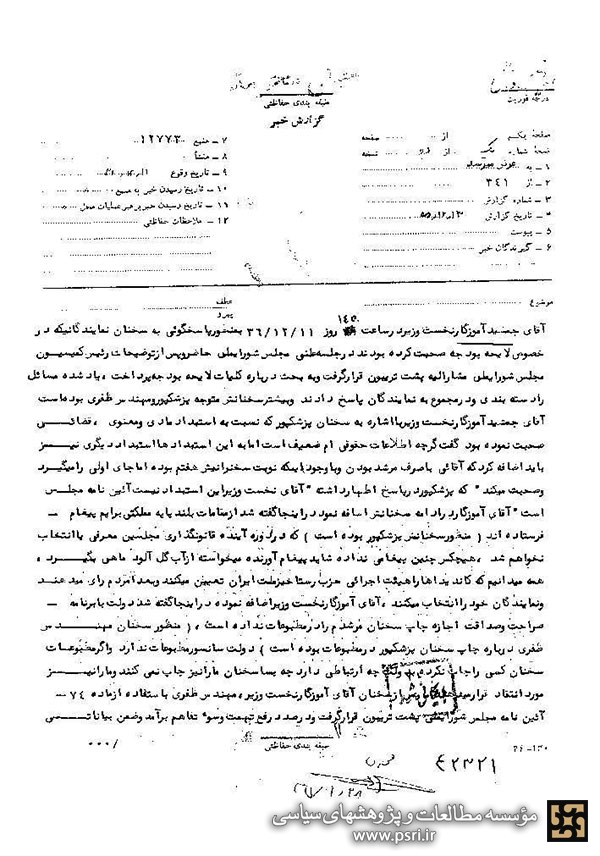 درجه فوریت
طبقه بندی حفاظتی
گزارش خبر
صفحه یکم از صفحه
نسخه شماره یک از نسخه
۱ – به
۲ – از ۳۴۱
۳ – شماره گزارش
۴ – تاریخ گزارش
۵ – پیوست
۶ – گیرندگان خبر
۷ – منبع ۱۲۷۷۳
۸ – منشأ
۹ – تاریخ وقوع
۱۰ – تاریخ رسیدن خبر به منبع
۱۱ – تاریخ رسیدن خبر برهبر عملیات محل
۱۲ – ملاحظات حفاظتی
موضوع
عطف
پیرو
آقای جمشید آموزگار نخست وزیر در ساعت ۱۴۵۰ روز ۳۶/۱۲/۱۱ بمنظور پاسخگوئی به سخنان نمایندگانیکه در
خصوص لایحه بودجه صحبت کرده بودند در جلسه علنی مجلس شورایملی حاضر و پس از توضیحات رئیس کمیسیون
مجلس شورایملی مشارالیه پشت تریبون قرار گرفت و به بحث درباره کلیات لایحه بودجه پرداخت ، یاد شده مسائل
را دسته بندی و در مجموع به نمایندگان پاسخ دادند و بیشتر سخنانش متوجه پزشکپور و مهندس ظفری بوده است
آقای جمشید آموزگار نخست وزیر با اشاره به سخنان پزشکپور که نسبت به استبداد مادی و معنوی ، قضائی
صحبت نموده بود گفت گرچه اطلاعات حقوقی ام ضعیف است اما به این استبدادها استبداد دیگری نیز
باید اضافه کرد که آقائی با صرف مرشد بودن و با وجود اینکه نوبت سخنرانیش هفتم بوده اما جای اولی را میگیرد
وصحبت میکند " که پزشکپور در پاسخ اظهار داشته "آقای نخست وزیر این استبداد نیست آئین نامه مجلس
است " آقای آموزگار در ادامه سخنانش اضافه نمود در اینجا گفته شد از مقامات بلند پایه مملکتی برایم پیغام –
فرستاده اند ( منظور سخنرانش پزشکپور بوده است ) که در دوره آینده قانونگذاری مجلسین معرفی یا انتخاب
نخواهم شد ، هیچکس چنین پیغامی نداده شاید پیغام آورنده میخواسته از آب گل آلود ماهی بگیرد ،
همه میدانیم که کاندیداها را هیئت اجرائی حزب رستاخیز ملت ایران تعیین میکند و بعد مردم رای میدهند
و نمایندگان خود را انتخاب میکنند ، آقای آموزگار نخست وزیر اضافه نمود در اینجا گفته شد دولت با برنامه
صراحت و صداقت اجازه چاپ سخنان مرشدم را در مطبوعات نداده است ، ( منظور سخنان مهندس
ظفری درباره چاپ سخنان پزشکپور در مطبوعات بوده است ) دولت سانسور مطبوعات ندارد و اگر مطبوعات
سخنان کسی را چاپ نکرده به دولت چه ارتباطی دارد چه بسا سخنان ما را نیز چاپ نمی کنند و ما را نیز
مورد انتقاد قرار میدهند پس از سخنان آقای آموزگار نخست وزیر ، مهندس ظفری با ستفاده از ماده ۷۴ –
آئین نامه مجلس شورایملی پشت تریبون قرار گرفت و درصدد رفع تهمت و سوء تفاهم برآمد و ضمن بیاناتی
طبقه بندی حفاظتی
۴۲۳۲۱
مؤسسه مطالعات و پژوهشهای سیاسی
www.psri.ir